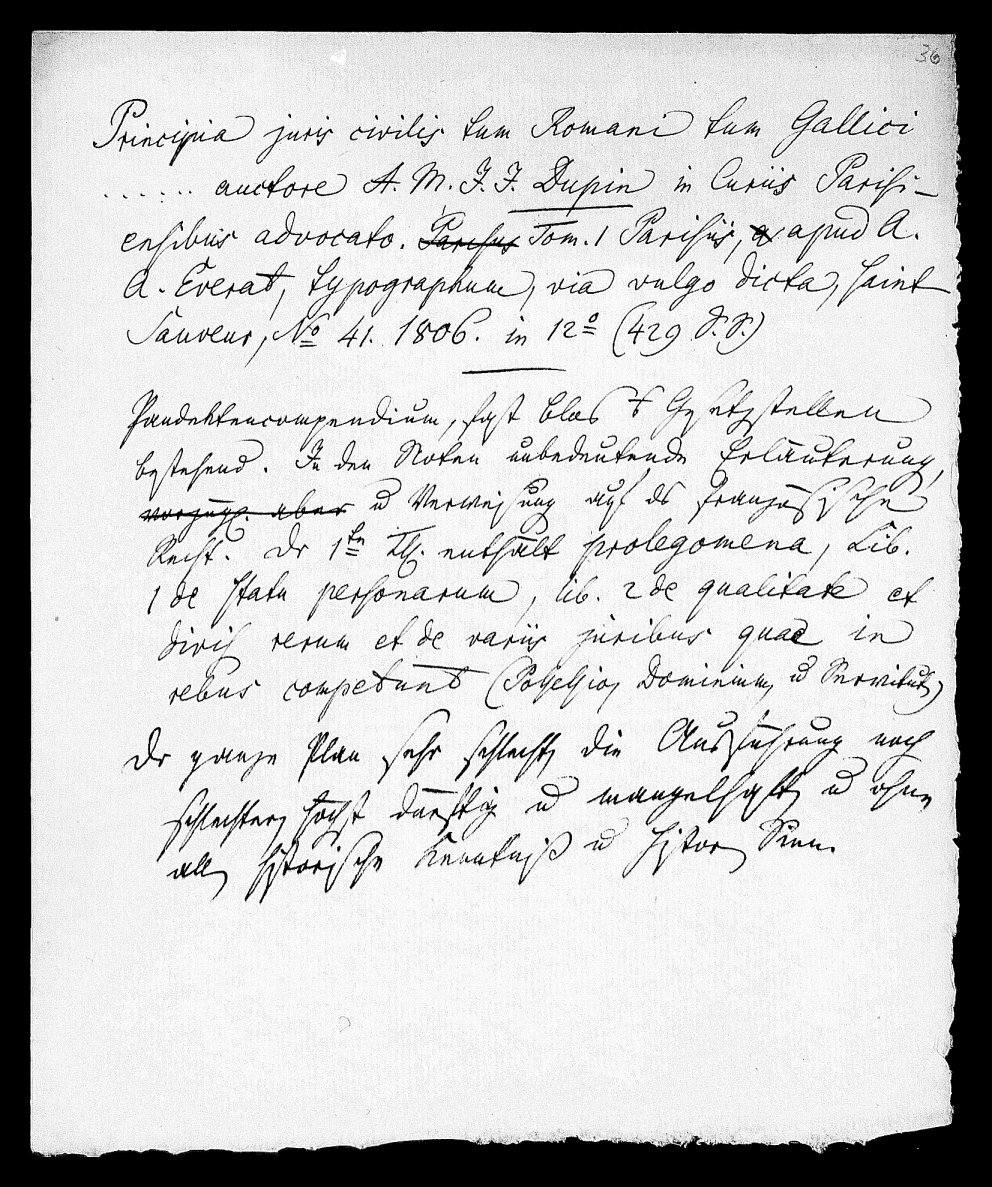 36
Principia juris civilis tum Romani tum Gallici
...... auctore A. M. J. J. Dupin in Curiis Parisi-
ensibus advocato. Parisiis Tom. 1 Parisiis, a apud A.
A. Everat, typographum, via vulgo dicta, saint
Sauveur, No 41. 1806. in 12o (429 S. S.)
Pandektencompendium, fast blos Gesetzstellen
bestehend. In den Noten unbedeutende Erläuterung,
vorzügl. aber u Verweisung auf ds französische
Recht. Dr 1te Th. enthält prolegomena, Lib.
1 de statu personarum, lib. 2 de qualitate et
divis rerum et de variis juribus quae in
rebus competunt (Possessio, Dominium, u Servitut)
Dr ganze Plan sehr schlecht, die Ausführung noch
schlechter, höchst dürftig u mangelhaft, u ohne
all historische Kenntniß u histor Sinn.